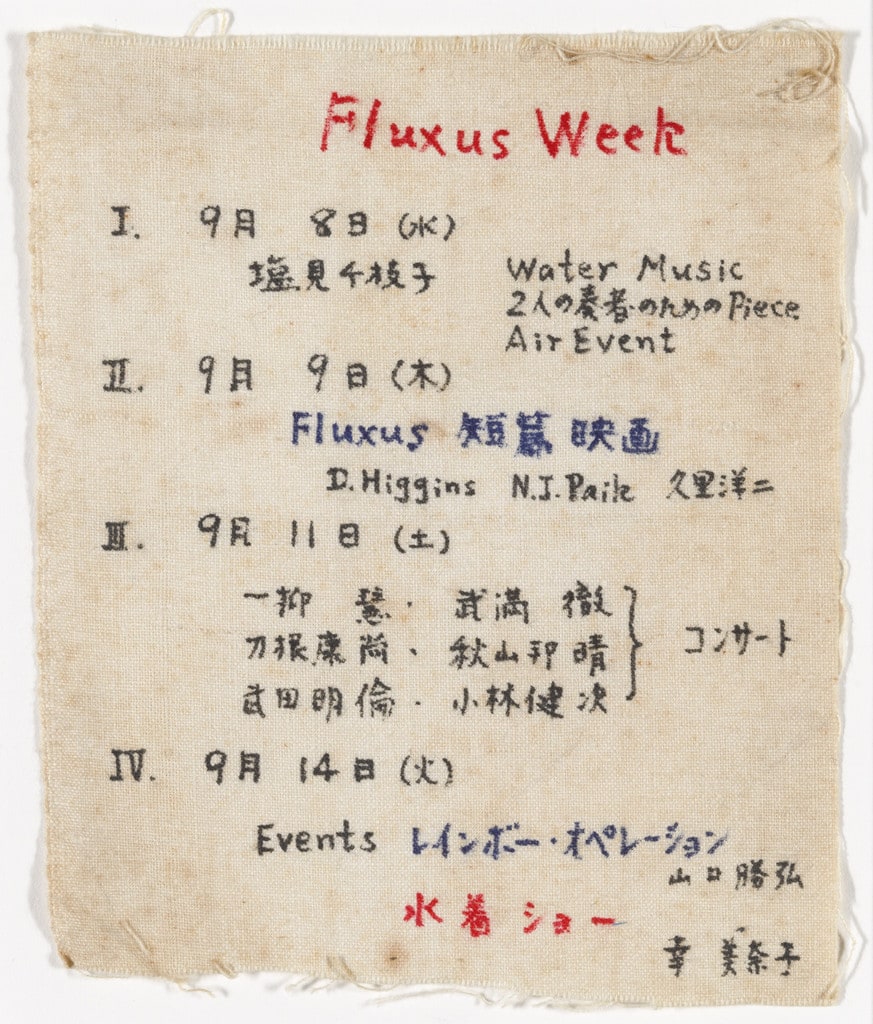 Fluxus Week
I. 9月 8日(水)
塩見千枝子 Water Music
2人の奏者のためのPiece
Air Event
II. 9月 9日(木)
Fluxus 短篇映画
D.Higgins N.J.Paik 久里洋二
III. 9月 11日(土)
一柳 慧・武満 徹
刀根康尚・秋山邦晴 } コンサート
武田明倫・小林健次
IV. 9月 14日(火)
Events レインボー・オペレーション
山口勝弘
水着ショー
幸 美奈子